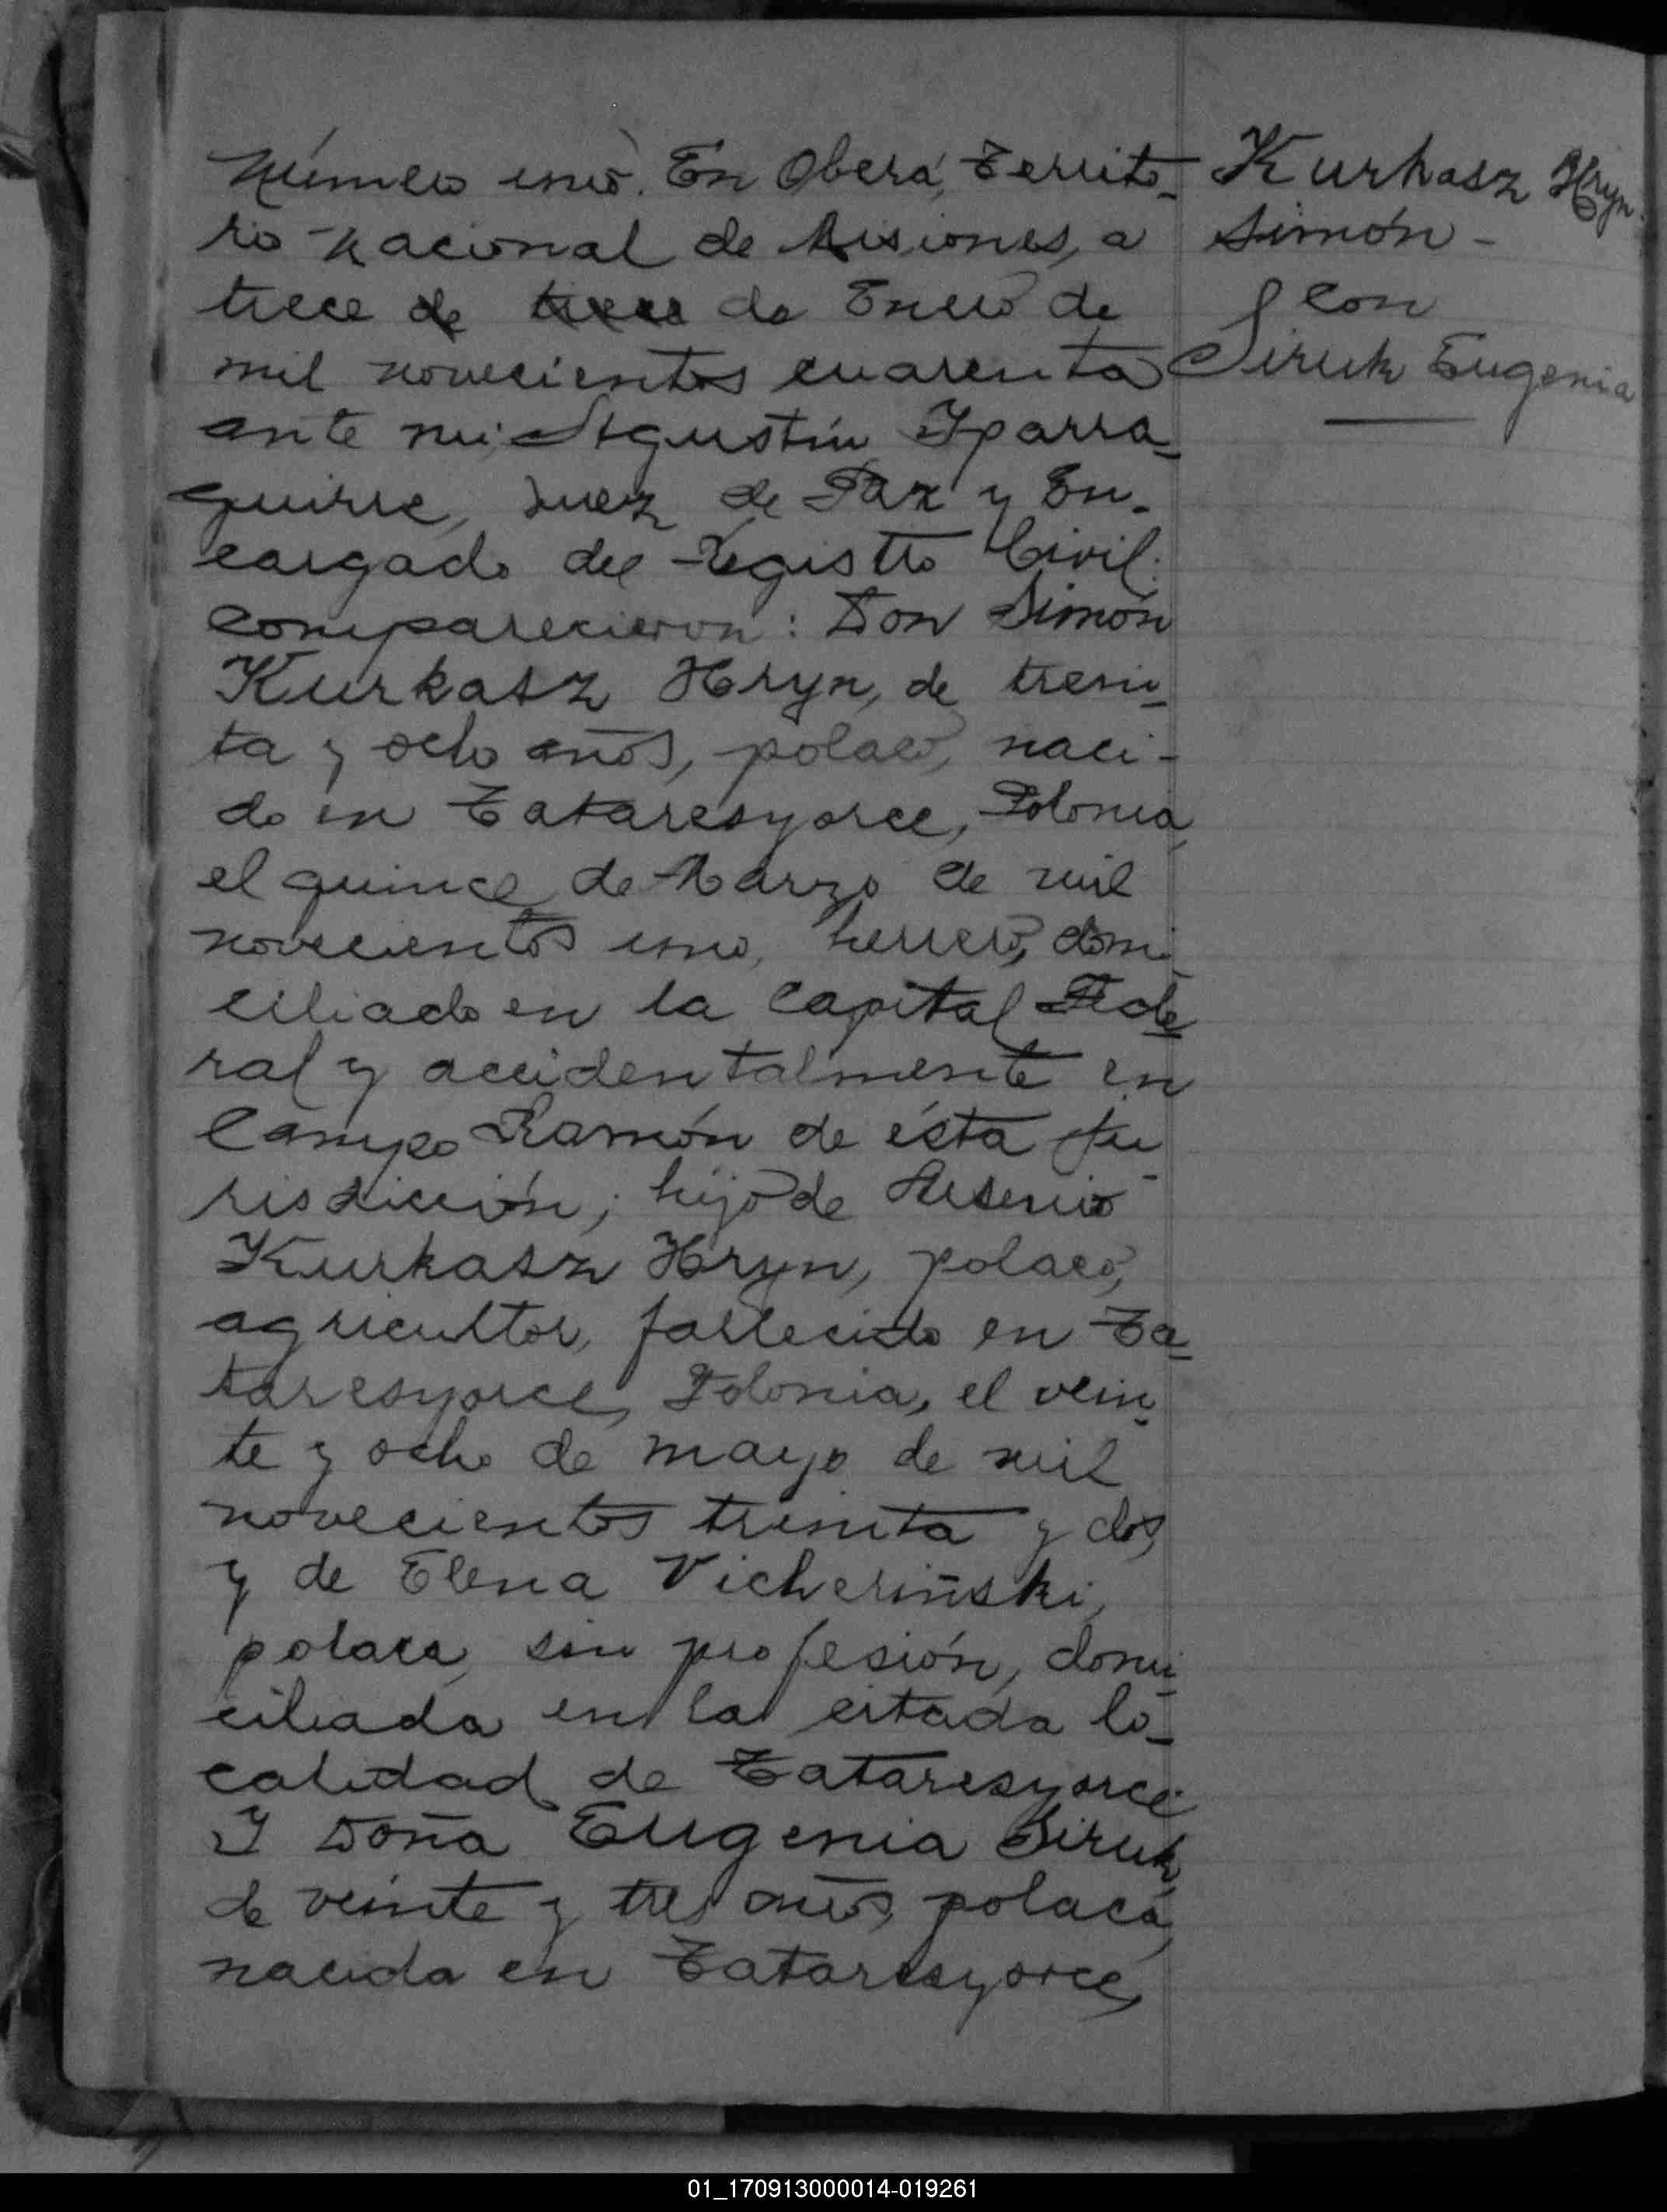 Número uno. En Oberá, Territo-
rio nacional de Misiones, a
trece de trece de Enero de
mil novecientos cuarenta
ante mi, Agustín Yparra-
guirre, Juez de Paz y En-
cargado del Registro Civil:
comparecieron: Don Simón
Kurkasz Hryn, de trein-
ta y ocho años, polaco, naci-
do en Tataresyorce, Polonia,
el quince de Marzo de mil
novecientos uno, herrero, domi-
ciliado en la Capital Fede-
ral y accidentalmente en
Campo Ramón de ésta ju-
risdicción; hijo de Arsenio
Kurkasz Hryn, polaco,
agricultor, fallecido en Ta-
taresyorce, Polonia, el vein-
te y ocho de mayo de mil
novecientos treinta y dos,
y de Elena Vicheriñski,
polaca, sin profesión, domi-
ciliada en la citada lo-
calidad de Tataresyorce.
Y Doña Eugenia Siruk,
de veinte y tres años, polaca,
nacida en Tataresyorce,
Kurkasz Hryn
Simón -
con
Siruk Eugenia
01_170913000014-019261